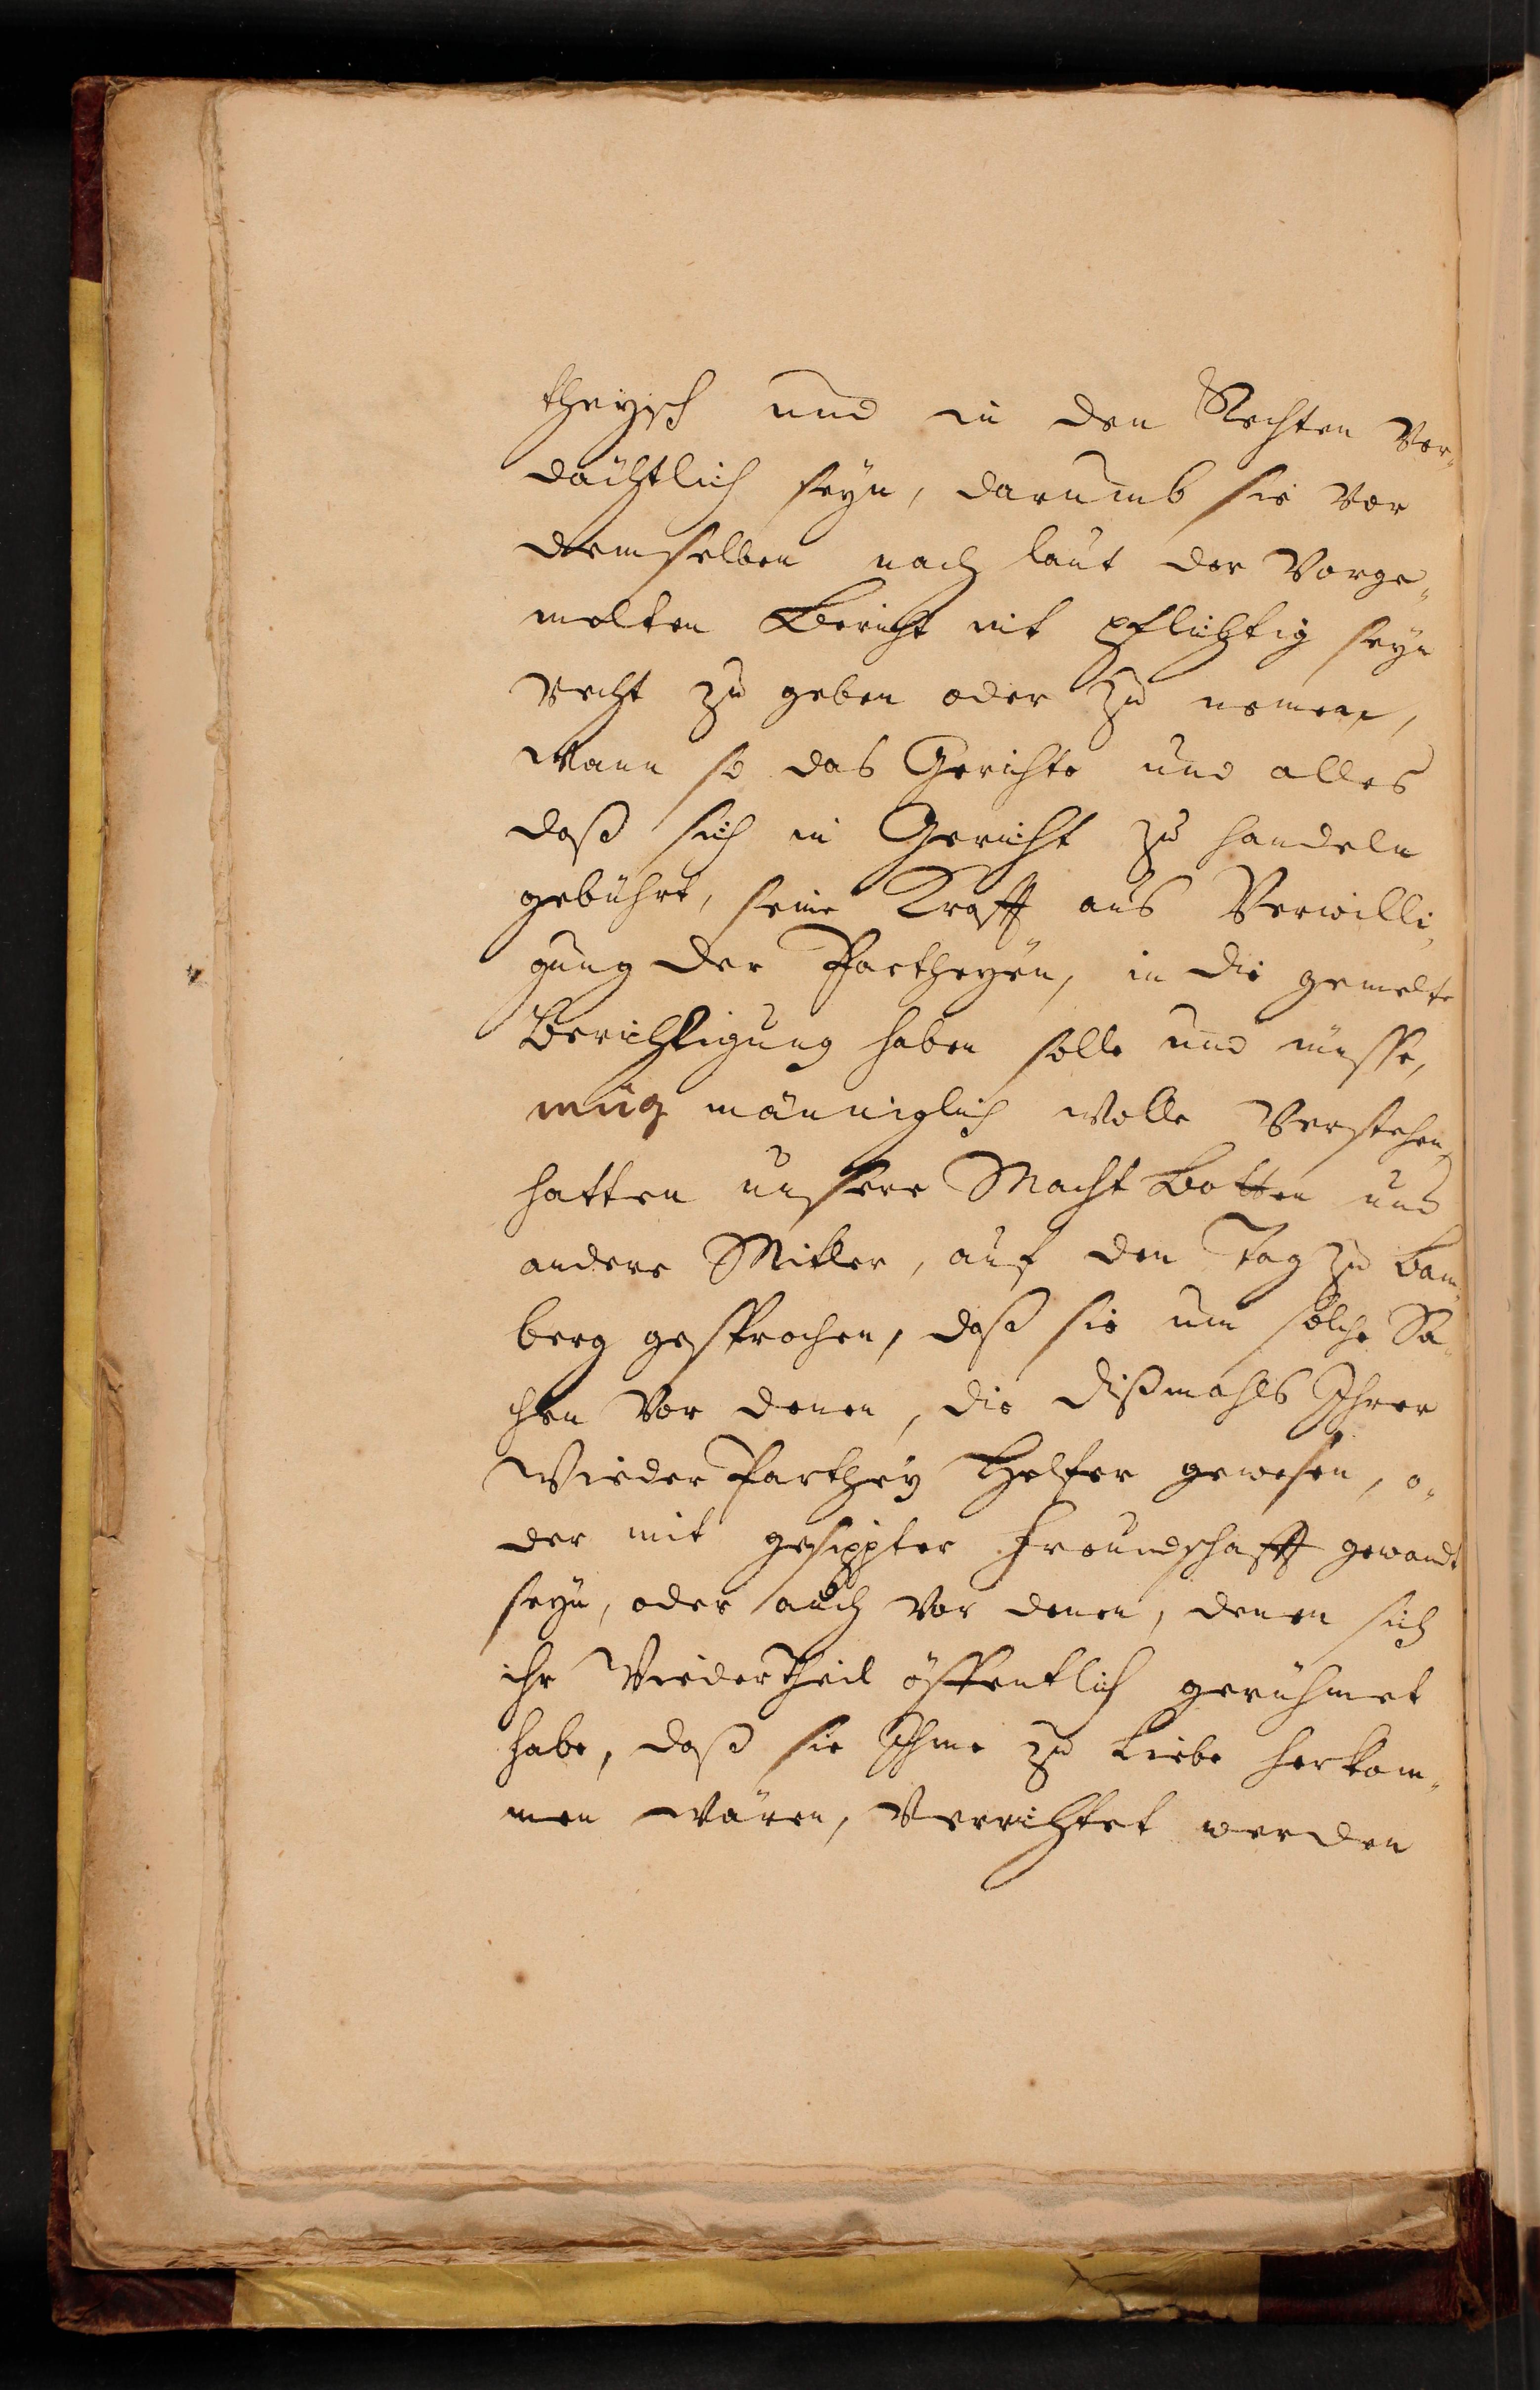 theyisch und in den Rechten Ver„
dächtlich seyn, darumb sie vor
demselben nach laut der Vorge„
melten Bericht nit pflichtig seyn
recht zu geben oder zu nemen,
wann so das Gerichte und alles
daß sich in Gericht zu handeln
gebührt, seine Krafft aus Verwilli„
gung der Partheyen, in die gemelte
Berichtigung haben solle und müsse,
müg männiglich wolle verstehen,
hatten unsere Macht Botten und
andere Mitler, auf den Tag zu Bam„
berg gesprochen, daß sie um solche Sa„
chen vor denen, die dißmahls Ihrer
Wieder Parthey Helfer gewesen, o„
der mit gesippter Freundschafft gewandt
seyn, oder auch vor denen, denen sich
ihr WiederTheil öffentlich gerühmet
habe, daß sie Ihme zu Liebe herkom„
men wären, Verrichtet werden